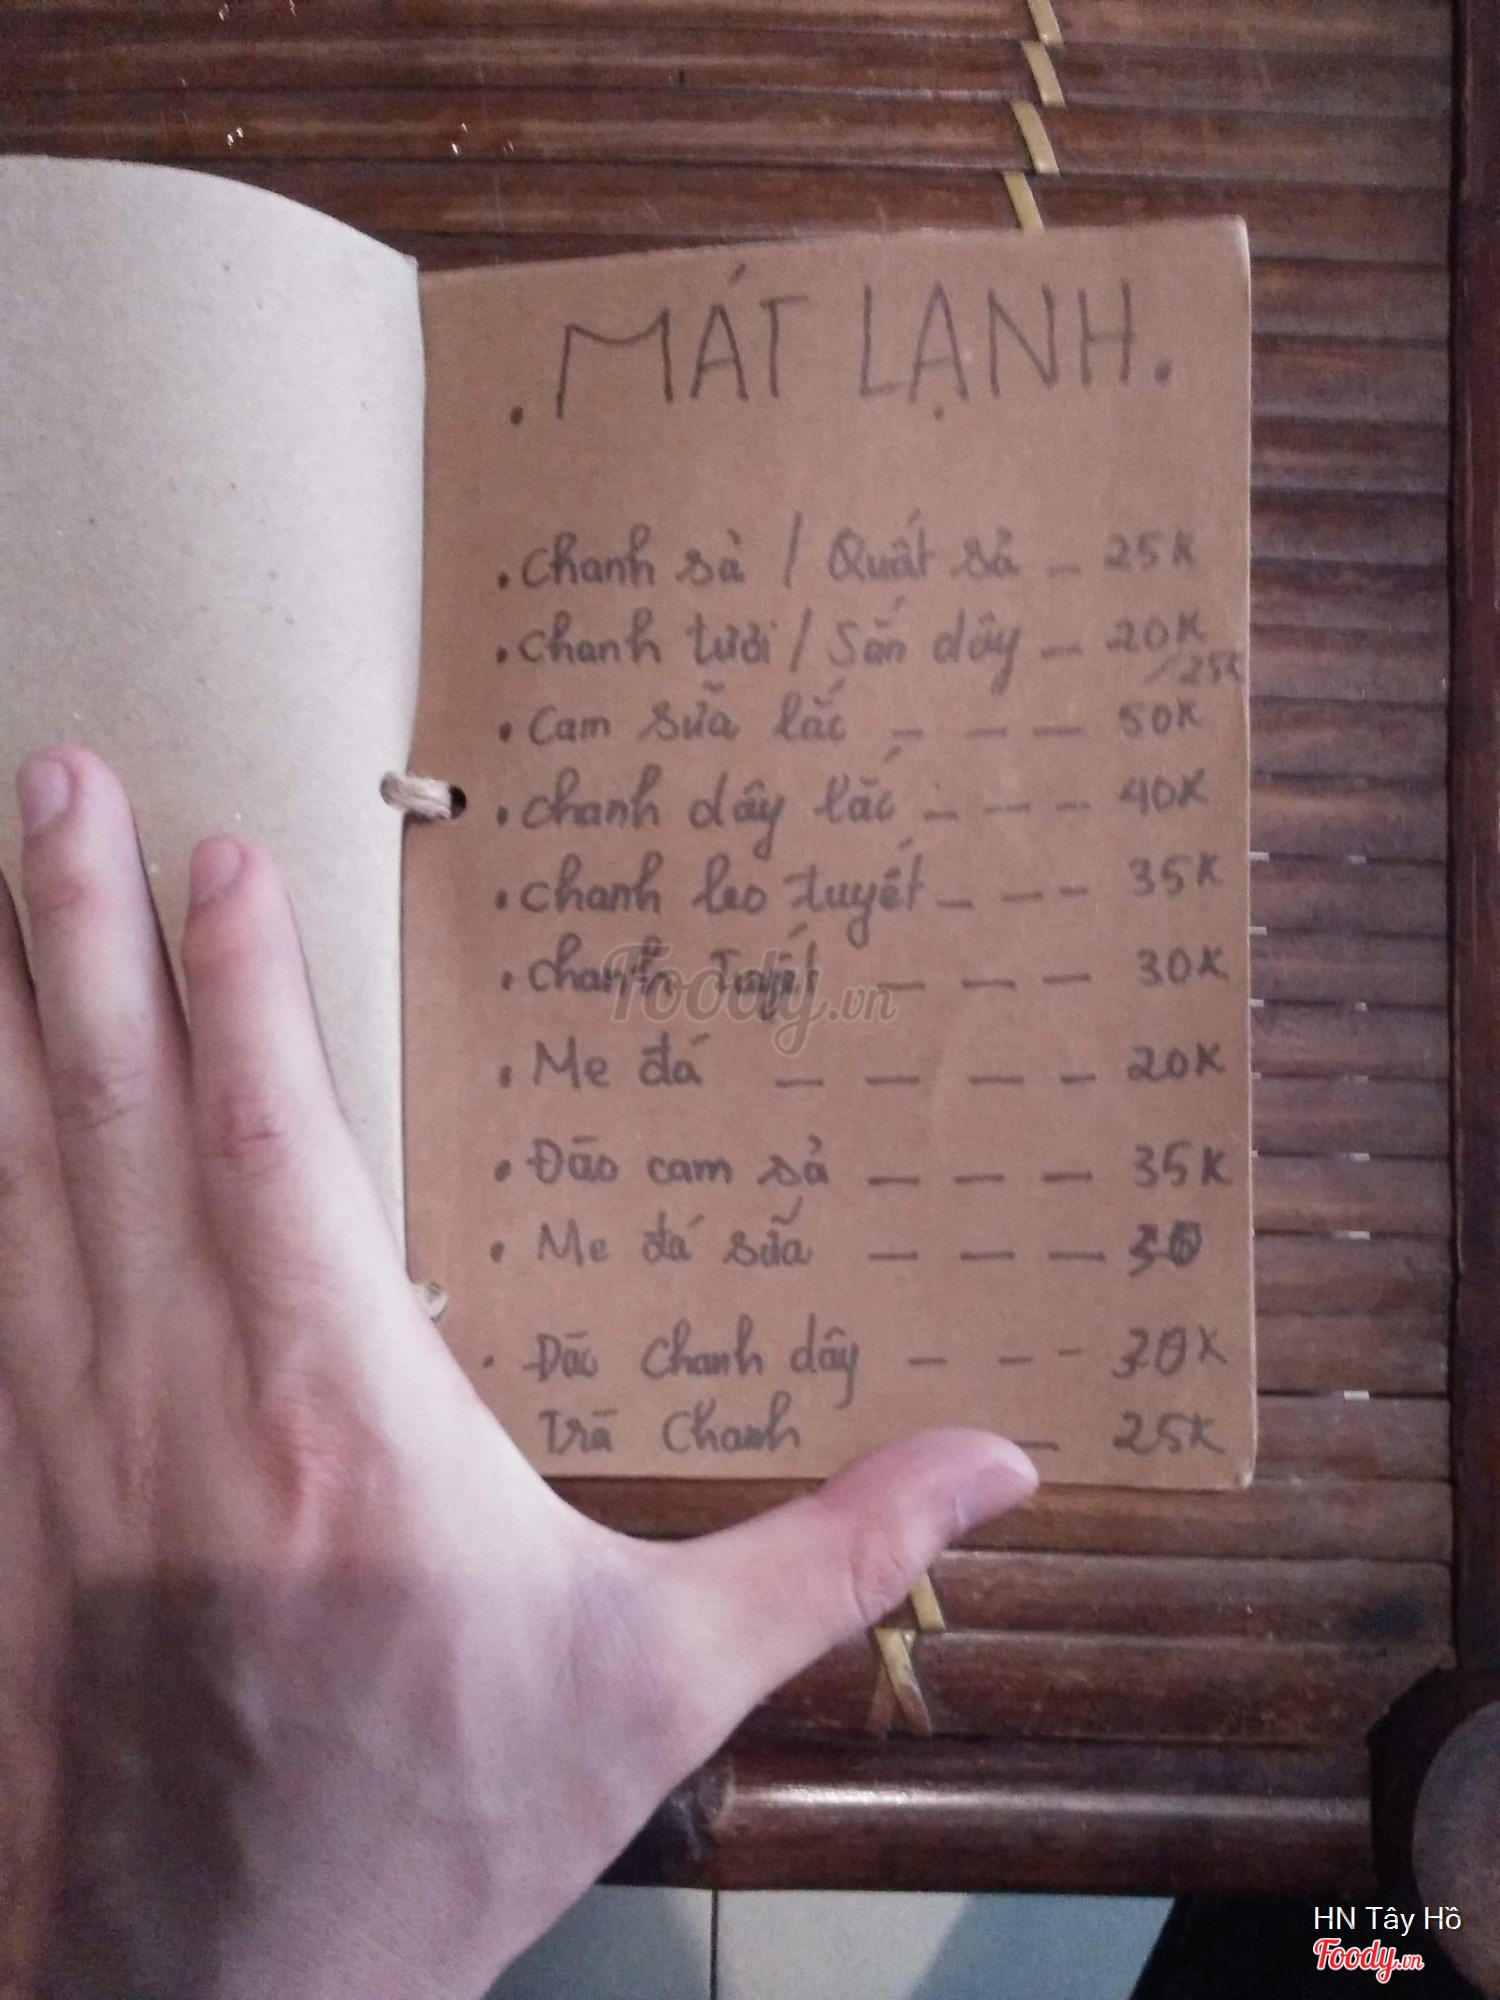 . MÁT LẠNH.
. Chanh sả / Quất sả - 25K
. Chanh tươi / Sắn dây - 20K
/25K
. Cam sữa lắc - - - 50K
. Chanh dây lắc - - - 40K
. Chanh leo tuyết - - - 35K
. Chanh Tuyết - - - 30K
. Me đá - - - - 20K
. Đào cam sả - - - 35K
. Me đá sữa - - - 30
. Đào Chanh dây - - - 30K
Trà Chanh - 25K
Foody.vn
HN Tây Hồ
Foody.vn